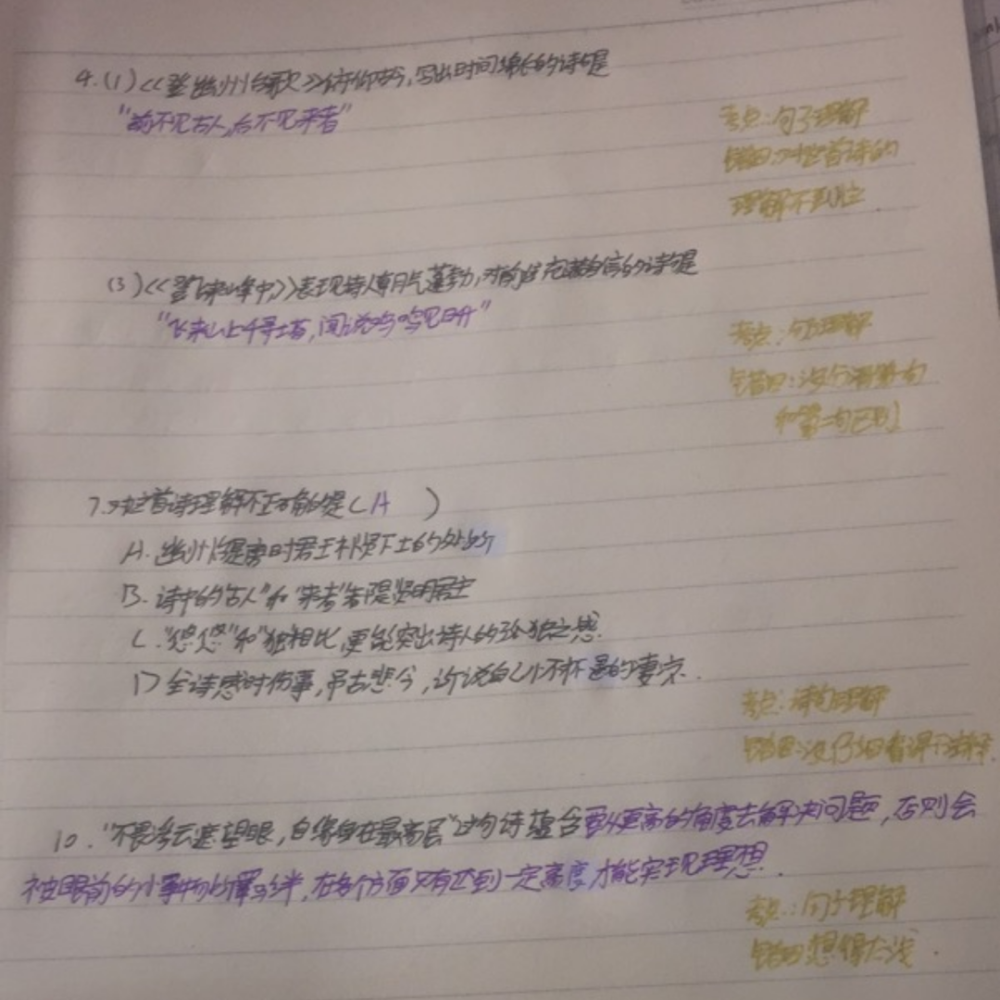 4.(1)<<登幽州台歌>>俯仰古今,写出时间绵长的诗句是
"前不见古人,后不见来者"
考点:句子理解
错因:对这首诗的
理解不到位
(3)<<登飞来峰中>>表现诗人朝气蓬勃,对前途充满信心的诗句是
"飞来山上千寻塔,闻说鸡鸣见日升"
考点:句子理解
错因:没分清第一句
和第二句区别
7.对这首诗理解不正确的是(A )
A.幽州台是唐时君王礼贤下士的处所
B.诗中的"古人"和"来者"皆限贤明君主
C."悠悠"和"独"相比,更能突出诗人的孤独之感.
D 全诗感时伤事,吊古悲今,诉说自己怀才不遇的凄哀.
考点:诗句理解
错因:没仔细看课下注释.
10."不畏浮云遮望眼,自缘身在最高层"这句诗蕴含要从更高的角度去解决问题,否则会
被眼前的小事物所羁绊,在各个方面只有达到一定高度才能实现理想.
考点:句子理解
错因想得太浅.